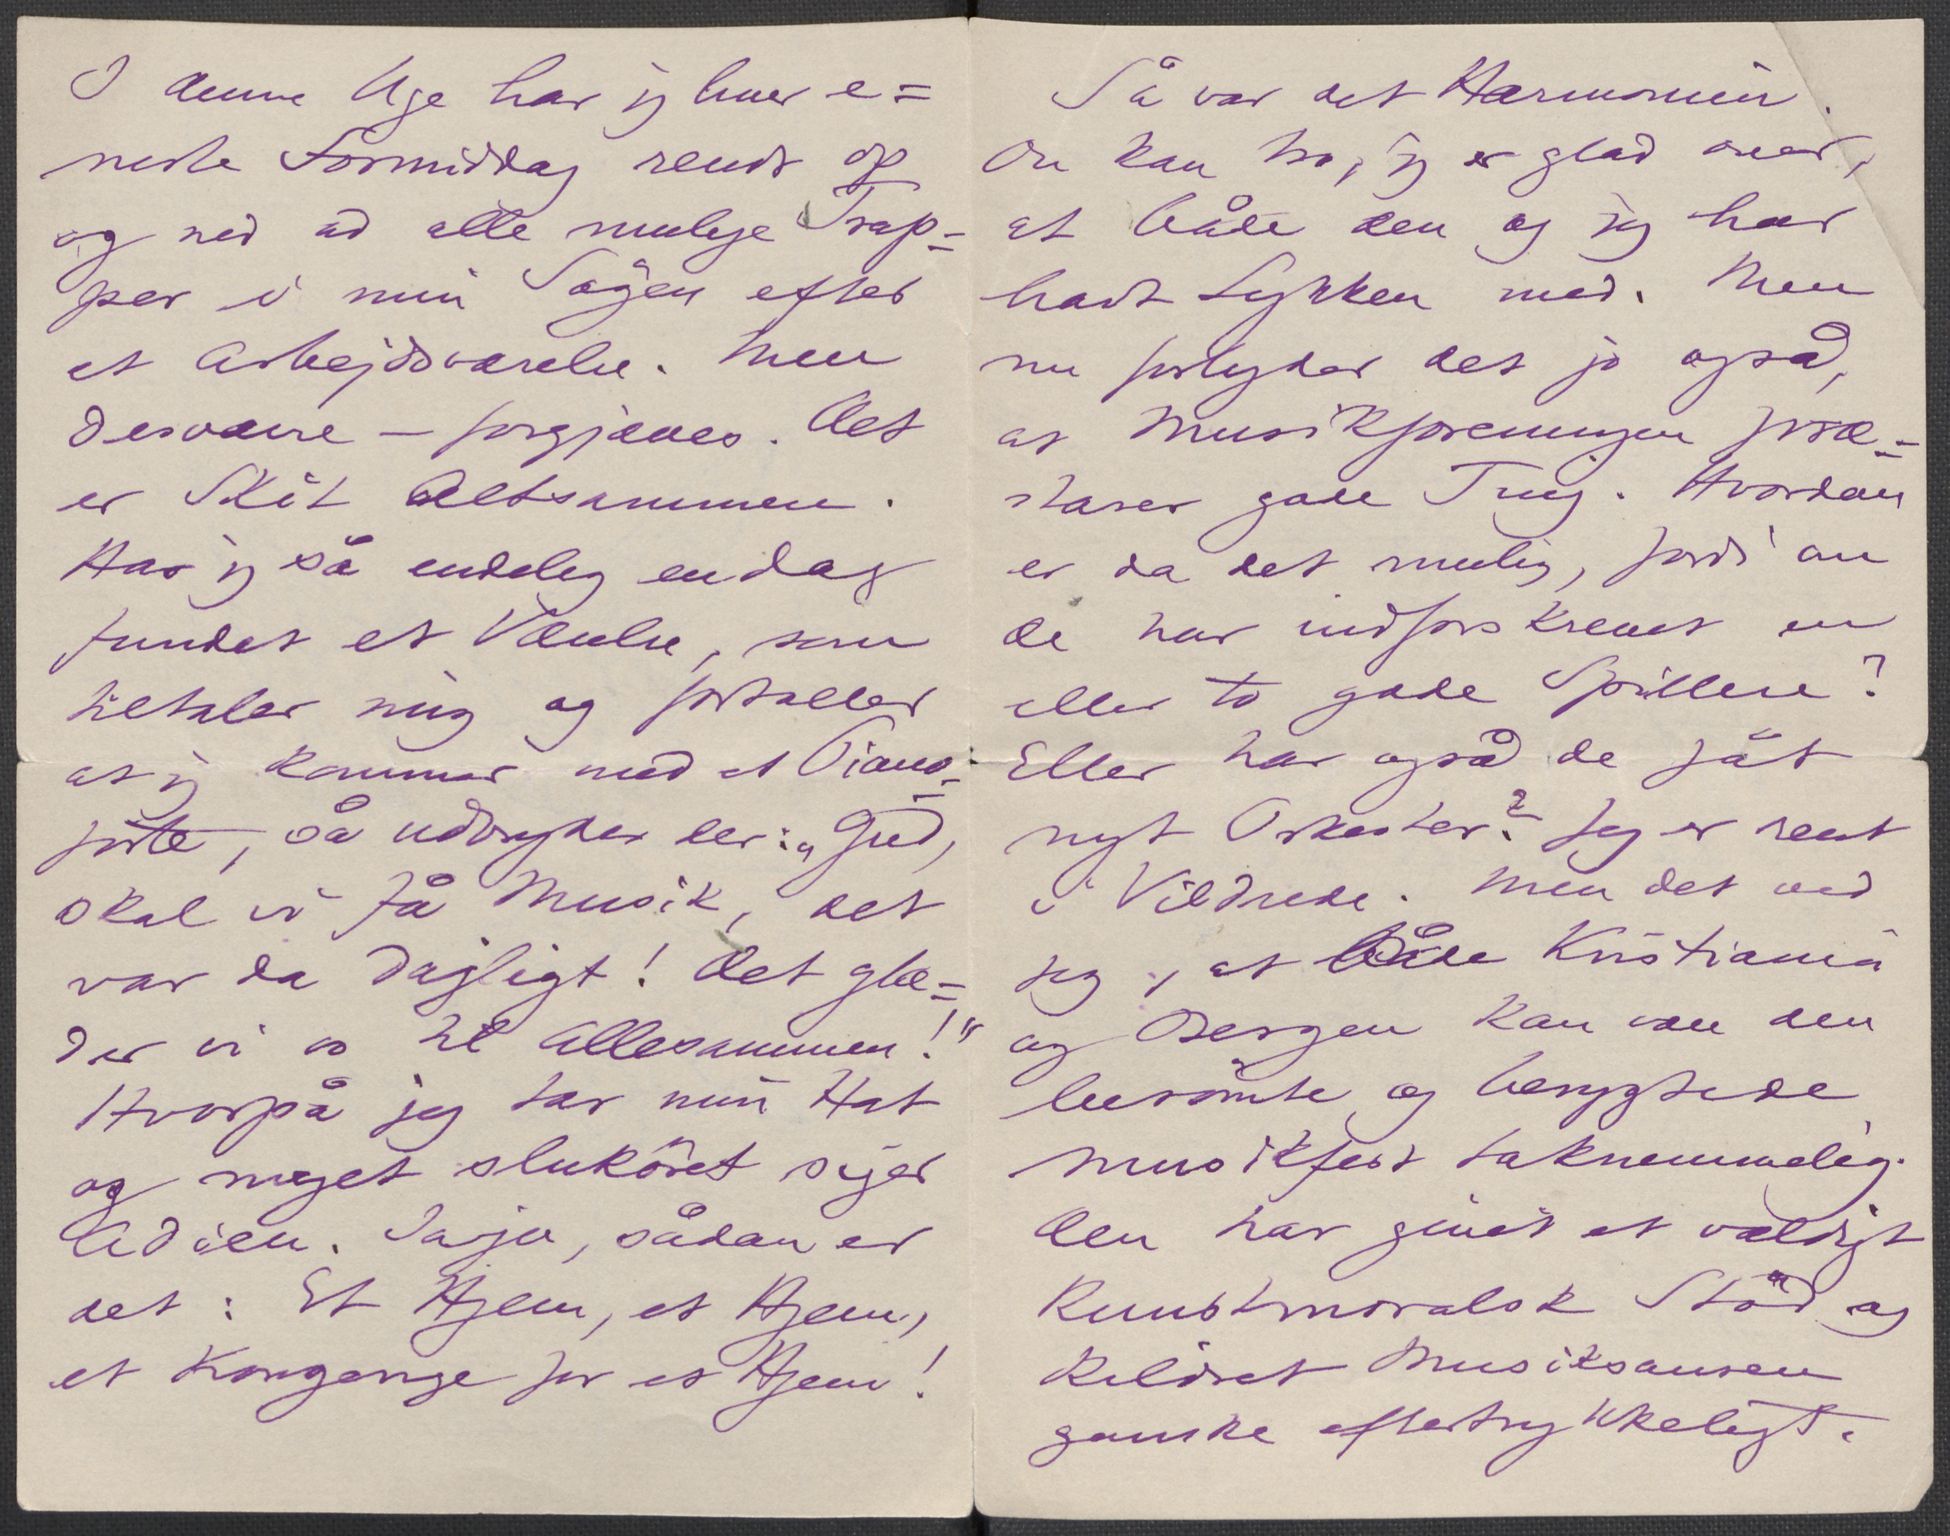 I denne Uge har jeg hver e=
neste Formiddag rendt op
og ned ad alle mulige Trap=
per i min Søgen efter
et Arbejdsværelse. Men
desværre – forgjæves. Det
er Skit Altsammen.
Har jeg så endelig en dag
fundet et Værelse, som
tiltaler mig og fortæller
at jeg kommer med et Piano=
forte, så udbryder der: „Gud,
skal vi få Musik, det
var da dejligt! Det glæ=
der vi os til allesammen!"
Hvorpå jeg tar min Hat
og meget slukøret siger
Adieu. Jaja, sådan er
det: Et Hjem, et Hjem,
et Kongerige for et Hjem!
Så var det Harmonien.
Du kan tro, jeg er glad over,
at både den og jeg har
havt Lykken med. Men
nu forlyder det jo også,
at Musikforeningen præ=
sterer gode Ting. Hvordan
er da det mulig, fordi om
de har indforskrevet en
eller to gode Spillere?
Eller har også de fåt
nyt Orkester? Jeg er rent
i Vildrede. Men det ved
jeg, at både Kristiania
og Bergen kan være den
berömte og berygtede
Musikfest taknemmelig.
Den har givet et vældigt
kunstmoralsk Stöd og
kildret Musiksansen
ganske eftertrykkeligt.